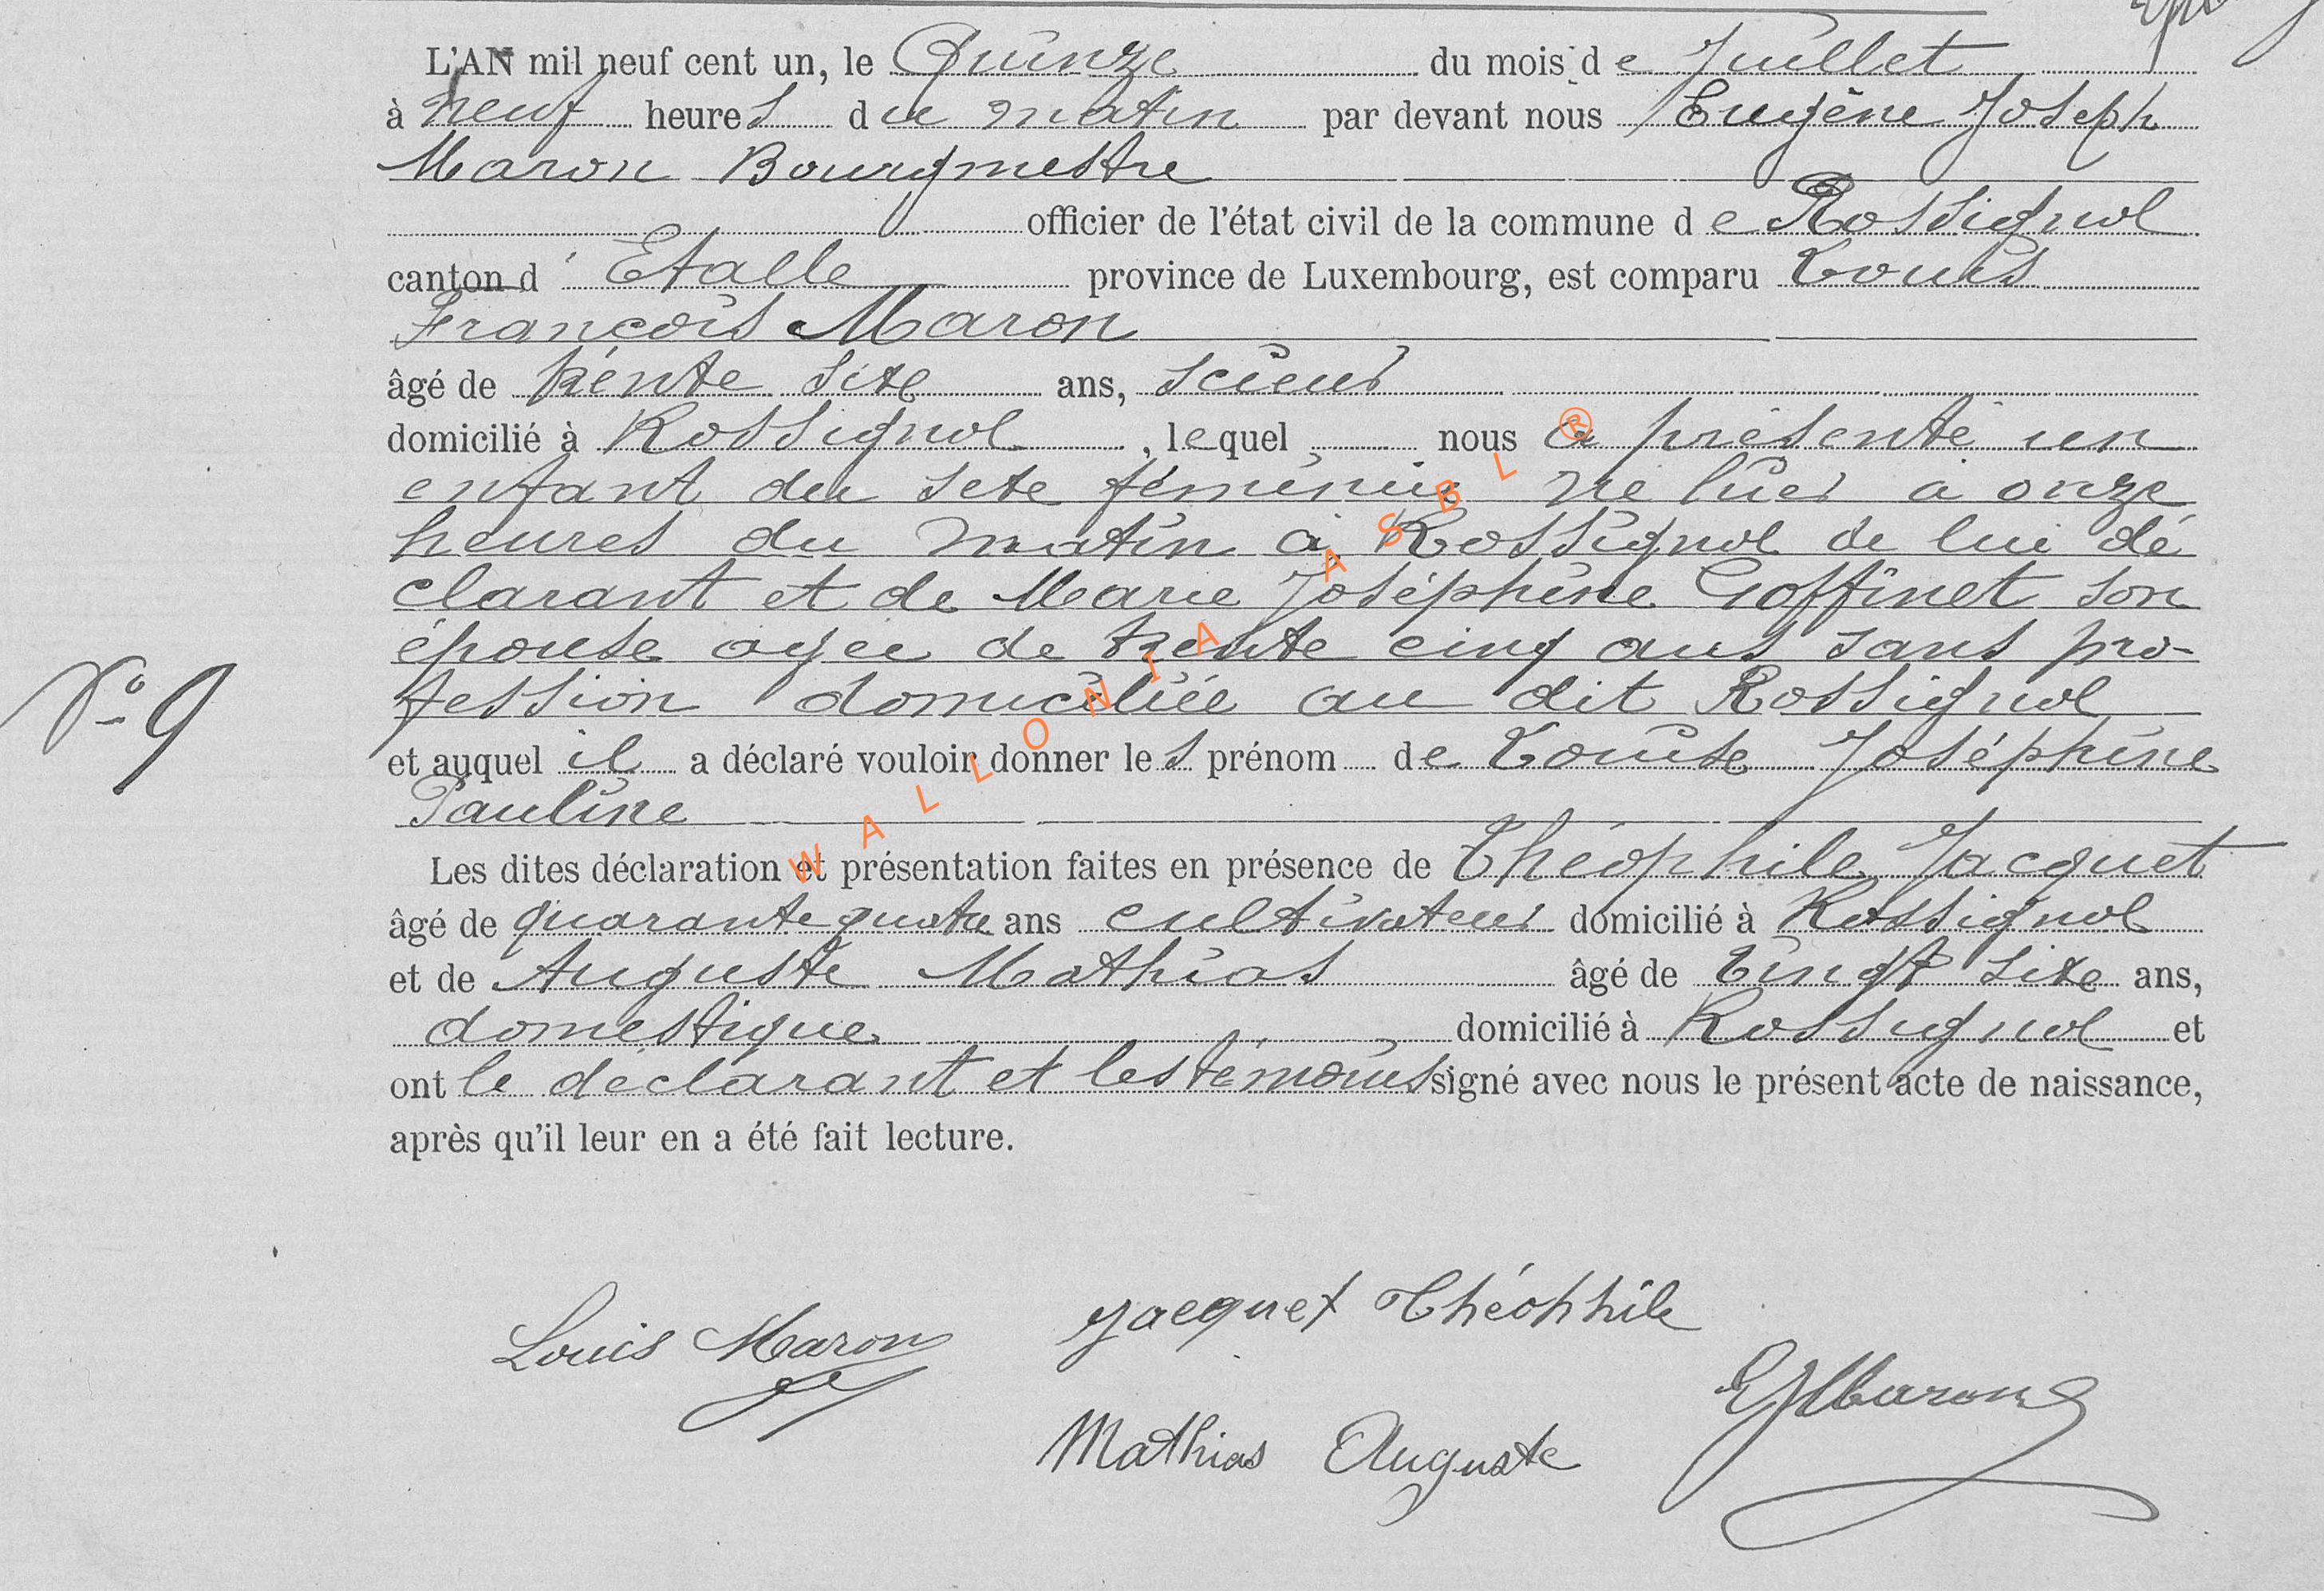 L'AN mil neuf cent un, le Quinze du mois de Juillet
à neuf heures du matin par devant nous Eugène Joseph
Maron Bourgmestre
officier de l'état civil de la commune de Rossignol
canton d'Etalle province de Luxembourg, est comparu Louis
François Maron
âgé de trente sixe ans, scieur
domicilié à Rossignol, lequel nous a présenté un
enfant du sexe féminin né hier à onze
heures du matin à Rossignol de lui dé
clarant et de Marie Joséphine Goffinet son
épouse agée de trente cinq ans sans pro-
fession domiciliée au dit Rossignol
N° 9
et auquel il a déclaré vouloir donner les prénom de Louise Joséphine
Pauline
Les dites déclaration et présentation faites en présence de Théophile Jacquet
âgé de quarante quatre ans cultivateur domicilié à Rossignol
et de Auguste Mathias âgé de Vingt sixe ans,
domestique domicilié à Rossignol et
ont le déclarant et les témoins signé avec nous le présent acte de naissance,
après qu'il leur en a été fait lecture.
Louis Maron
Jacquet Théophile
EJMaron
Mathias Auguste
WALLONIA ASBL ®